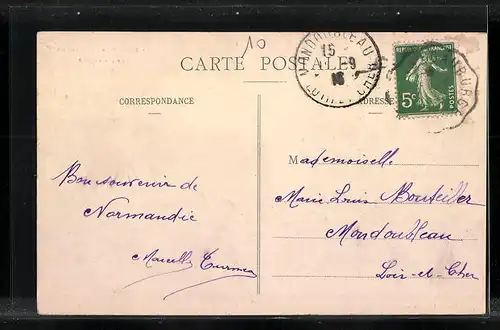 10
MONDOUBLEAU
15 -9
16
LOIR-ET-CHER
CARTE POSTALE
REPUBLIQUE FRANÇAISE
5c
POSTES
CORRESPONDANCE
ADRESSE
Bon souvenir de
Normandie
Marcelle
Mademoiselle
Marie Louis Bouteiller
Mondoubleau
Loir-et-Cher